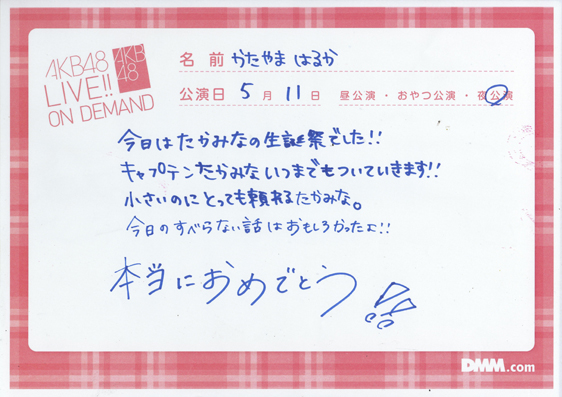 AKB48
LIVE!!
ON DEMAND
AKB
48
名前 かたやま はるか
公演日 5月 11日 昼公演・おやつ公演・夜公演
今日はたかみなの生誕祭でした!!
キャプテンたかみないつまでもついていきます!!
小さいのにとっても頼れるたかみな。
今日のすべらない話はおもしろかったよ!!
本当におめでとう!!
DMM.com